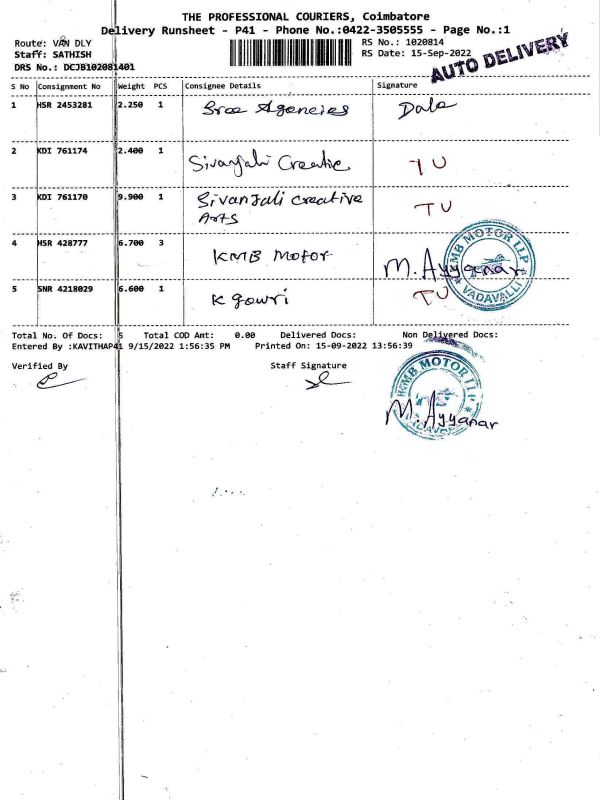 THE PROFESSIONAL COURIERS, Coimbatore
Delivery Runsheet - P41 - Phone No.:0422-3505555 - Page No.:1
Route: VAN DLY RS No.: 1020814
Staff: SATHISH RS Date: 15-Sep-2022
DRS No.: DCJB102081401 AUTO DELIVERY
S No Consignment No Weight PCS Consignee Details Signature
1 HSR 2453281 2.250 1 Sree Agencies
2 KDI 761174 2.400 1 Sivanjali Creative TU
3 KDI 761170 9.900 1 Sivanjali creative TU
Arts
4 HSR 428777 6.700 3 KMB Motor M. Ayyanar
KMB MOTOR LLP VADAVALLI
5 SNR 4218029 6.600 1 K Gowri TU
Total No. Of Docs: 5 Total COD Amt: 0.00 Delivered Docs: Non Delivered Docs:
Entered By :KAVITHAP41 9/15/2022 1:56:35 PM Printed On: 15-09-2022 13:56:39
Verified By Staff Signature
KMB MOTOR LLP
M. Ayyanar